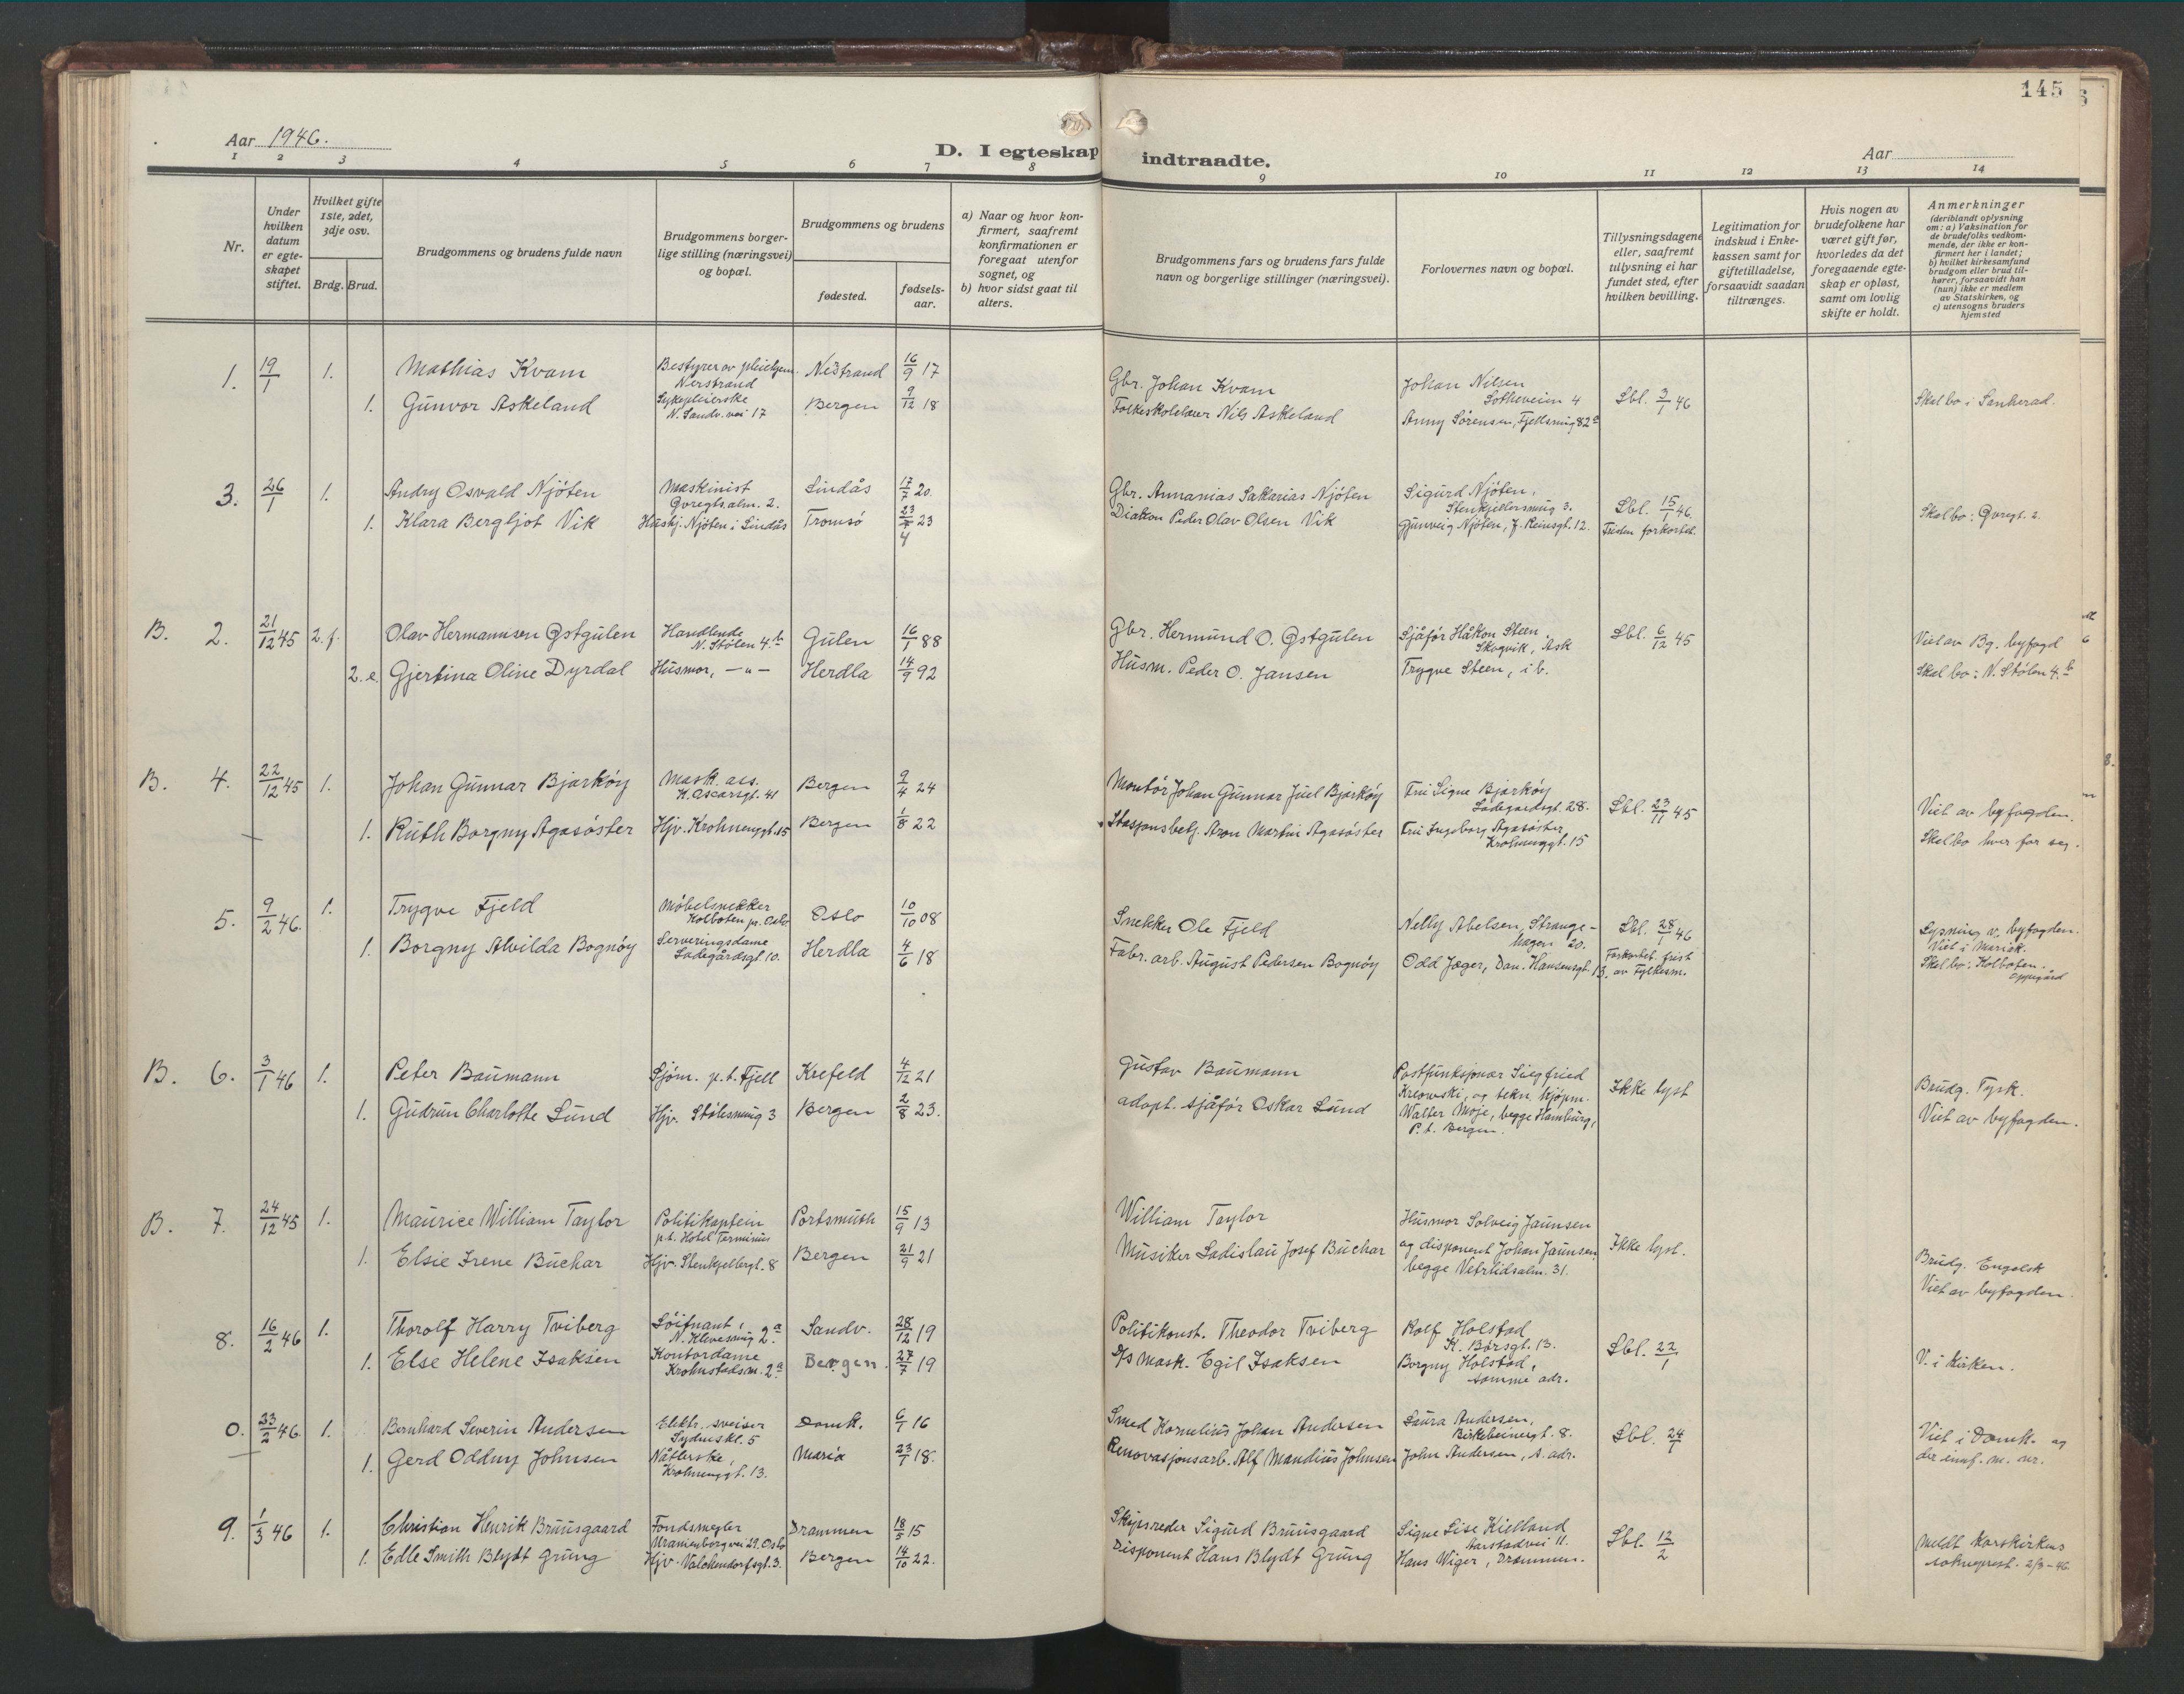 145
Aar 1946.
D. I egteskap indtraadte.
Aar
1 2 3 4 5 6 7 8 9 10 11 12 13 14
Nr.
Under hvilken datum er egteskapet stiftet.
Hvilket gifte 1ste, 2det, 3dje osv.
Brdg. Brud.
Brudgommens og brudens fulde navn
Brudgommens borgerlige stilling (næringsvei) og bopæl.
Brudgommens og brudens
fødested.
fødselsaar.
a) Naar og hvor konfirmert, saafremt konfirmationen er foregaat utenfor sognet, og
b) hvor sidst gaat til alters.
Brudgommens fars og brudens fars fulde navn og borgerlige stillinger (næringsvei).
Forlovernes navn og bopæl.
Tillysningsdagene eller, saafremt tillysning ei har fundet sted, efter hvilken bevilling.
Legitimation for indskud i Enkekassen samt for giftetilladelse, forsaavidt saadan tiltrænges.
Hvis nogen av brudefolkene har været gift før, hvorledes da det foregaaende egteskap er opløst, samt om lovlig skifte er holdt.
Anmerkninger
(deriblandt oplysning om: a) Vaksination for de brudefolks vedkommende, der ikke er konfirmert her i landet; b) hvilket kirkesamfund brudgom eller brud tilhører, forsaavidt han (hun) ikke er medlem av Statskirken, og c) utensogns bruders hjemsted
1. 19/1 1. Mathias Kvam Bestyrer av pleiehjem. Nerstrand Nestrand 16/9 17 Gbr. Johan Kvam Johan Nilsen Sotheveien 4 Lbl. 3/1 46 Skal bo i Sankerad.
1. Gunvor Askeland Sykepleierske N. Sandv. vei 17 Bergen 9/12 18 Folkeskolelærer Nils Askeland Anny Sørensen, Fjellsmug 82a
3. 26/1 1. Andry Osvald Njøten Maskinist Øvregts.alm. 2. Lindås 17/7 20. Gbr. Annanias Sakarias Njøten Sigurd Njøten, Stenkjellersmug 3. Lbl. 15/1 46. Skal bo: Øvregt. 2.
1. Klara Bergljot Vik Hushj. Njøten i Lindås Tromsø 23/4 23 Diakon Peder Olav Olsen Vik Gunveig Njøten, J. Reinsgt. 12. Fristen forkortet.
B. 2. 21/12 45 2. f. Olav Hermannsen Østgulen Handlende N. Stølen 4b Gulen 16/1 88 Gbr. Hermund O. Østgulen Sjåfør Håkon Steen, Skogvik, Ask Lbl. 6/12 45 Viet av Bg. byfogd
2. e. Gjertina Oline Dyrdal Husmor, —"— Herdla 14/9 92 Husm. Peder O. Jansen Trygve Steen, ib. Skal bo: N. Stølen 4b
B. 4. 22/12 45 1. Johan Gunnar Bjarkøy Mask. ass. K. Oscarsgt. 41 Bergen 9/4 24 Montør Johan Gunnar Juel Bjarkøy Fru Signe Bjarkøy Ladegårdsgt. 28. Lbl. 23/11 45 Viet av byfogden.
1. Ruth Borgny Agasøster Hjv. Krohnenggt. 15 Bergen 1/8 22 Stasjonsbetj. Aron Martin Agasøster Fru Ingeborg Agasøster, Krohnenggt. 15 Skal bo hver for seg.
5. 9/2 46. 1. Trygve Fjeld Møbelsnekker Kolboten pr. Oslo Oslo 10/10 08 Snekker Ole Fjeld Nelly Abelsen, Strangehagen 20. Lbl. 28/1 46 Lysning v. byfogden. Viet i Mariak.
1. Borgny Alvilda Bognøy Serveringsdame Ladegårdsgt. 10. Herdla 4/6 18 Fabr. arb. August Pedersen Bognøy Odd Jæger, Dan. Hansensgt. 13. Forkortet frist av Fylkesm. Skal bo: Kolboten. Oppegård
B. 6. 3/1 46 1. Peter Baumann Sjøm. p.t. Fjell Krefeld 4/12 21 Gustav Baumann Postfunksjonær Siegfried Kreowski, og tekn. kjøpm. Ikke lyst Brudg. Tysk.
1. Gudrun Charlotte Lund Hjv. Stølesmug 3 Bergen 2/8 23. adopt. sjåfør Oskar Lund Walter Moje, begge Hamburg, P.t. Bergen. Viet av byfogden.
B. 7. 24/12 45 1. Maurice William Taylor Politikaptein p.t. Hotel Terminus Portsmuth 15/9 13 William Taylor Husmor Solveig Jaunsen Ikke lyst. Brudg. Engelsk
1. Elsie Irene Buchar Hjv. Stenkjellergt. 8 Bergen 21/9 21 Musiker Ladislau Josef Buchar og disponent Johan Jaunsen, begge Vetrlidsalm. 31. Viet av byfogden.
8. 16/2 46 1. Thorolf Harry Tviberg Løitnant, N. Klevesmug 2a Sandv. 28/12 19 Politikonst. Theodor Tviberg Rolf Holstad K. Børsgt. 13. Lbl. 22/1 V. i kirken.
1. Else Helene Isaksen Kontordame Krohnstadsm. 2a Bergen. 27/7 19 D/s Mask. Egil Isaksen Borgny Holstad, samme adr.
0. 23/2 46 1. Bernhard Severin Andersen Elektr. sveiser Sydneskl. 5 Domk. 6/1 16 Smed Kornelius Johan Andersen Laura Andersen, Birkebeinergt. 8. Lbl. 24/1 Viet i Domk. og
1. Gerd Oddny Johnsen Nåtlerske, Krohnenggt. 13. Maria 23/1 18. Renovasjonsarb. Alf Mandius Johnsen John Andersen, s. adr. der innf. m. nr.
9. 1/3 46 1. Christian Henrik Bruusgaard Fondsmegler Uranienborgvei 29. Oslo Drammen 18/5 15 Skipsreder Sigurd Bruusgaard Signe Lise Kielland Aarstadvei 11. Lbl. 12/2 Meldt Korskirkens
1. Edle Smith Blydt Grung Hjv. Valckendorfsgt. 3. Bergen 14/10 22. Disponent Hans Blydt Grung Hans Wiger, Drammen. sokneprest. 2/3-46